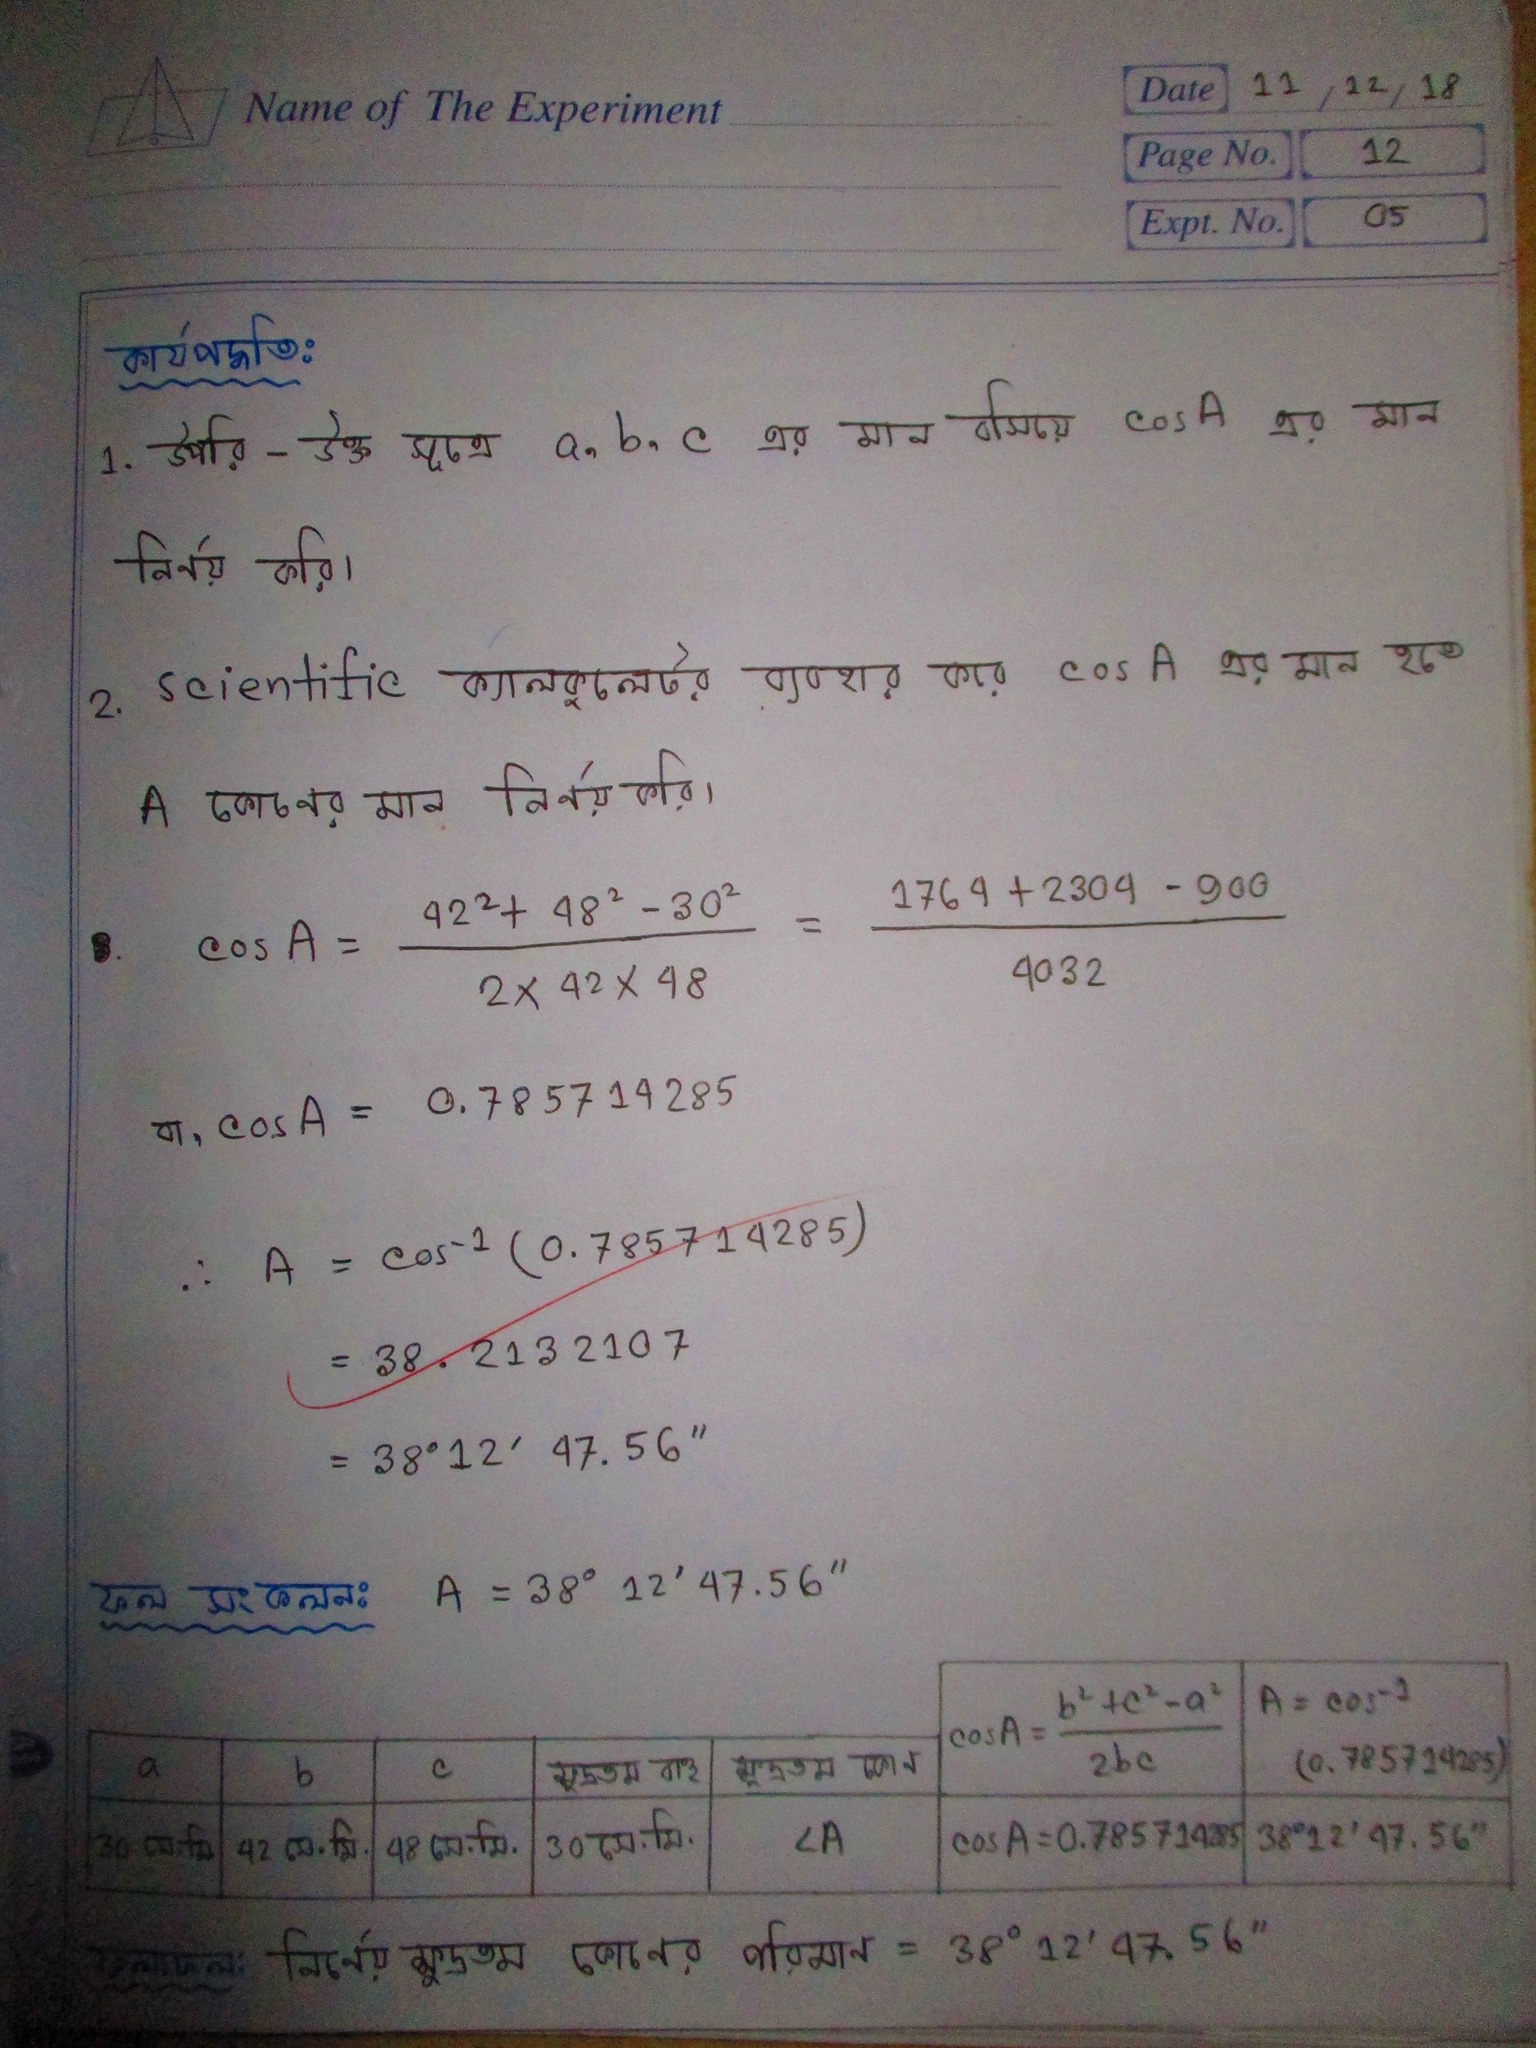 Name of The Experiment
Date 11/12/18
Page No. 12
Expt. No. 05
কার্যপদ্ধতিঃ
1. উপরি - উক্ত সূত্রে a, b, c এর মান বসিয়ে cosA এর মান
নির্ণয় করি।
2. scientific ক্যালকুলেটর ব্যবহার করে cosA এর মান হতে
A কোনের মান নির্ণয় করি।
3. cosA = (42² + 48² - 30²) / (2 × 42 × 48) = (1764 + 2304 - 900) / 4032
বা, cosA = 0.785714285
∴ A = cos⁻¹ (0.785714285)
= 38.2132107
= 38°12′ 47.56″
ফল সংকলনঃ A = 38° 12′ 47.56″
a b c ক্ষুদ্রতম বাহু ক্ষুদ্রতম কোন cosA = (b² + c² - a²) / 2bc A = cos⁻¹ (0.785714285)
30 সে.মি 42 সে.মি. 48 সে.মি. 30 সে.মি. ∠A cosA = 0.785714285 38°12′ 47.56″
ফলাফলঃ নির্ণেয় ক্ষুদ্রতম কোনের পরিমান = 38° 12′ 47.56″